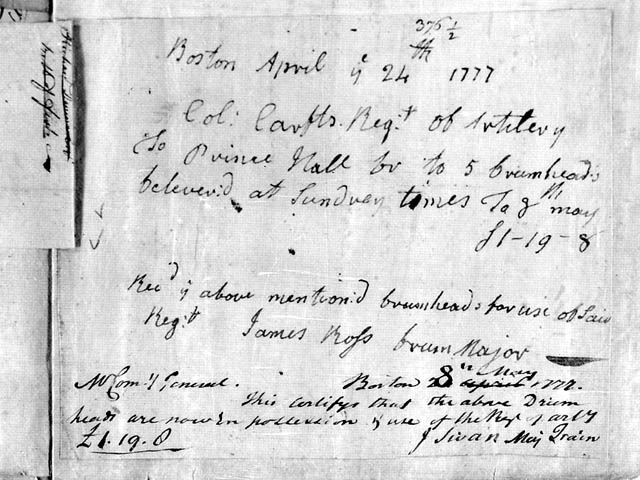 376 1/2
Boston April ye 24th 1777
Col: Carfts. Regt of Artilery
To Prince Hall Dr to 5 Drumheads
Delever'd at Sundrey times To 8th may
£1-19-8
Recd ye above mention'd Drumheads for use of Said
Regt James Ross Drum Major
Mr Comy General. Boston 8th May 1777.
This certifys that the above Drum
heads are now in possession & use of the Regt of arty
£1.19.8 J Swan Maj Train